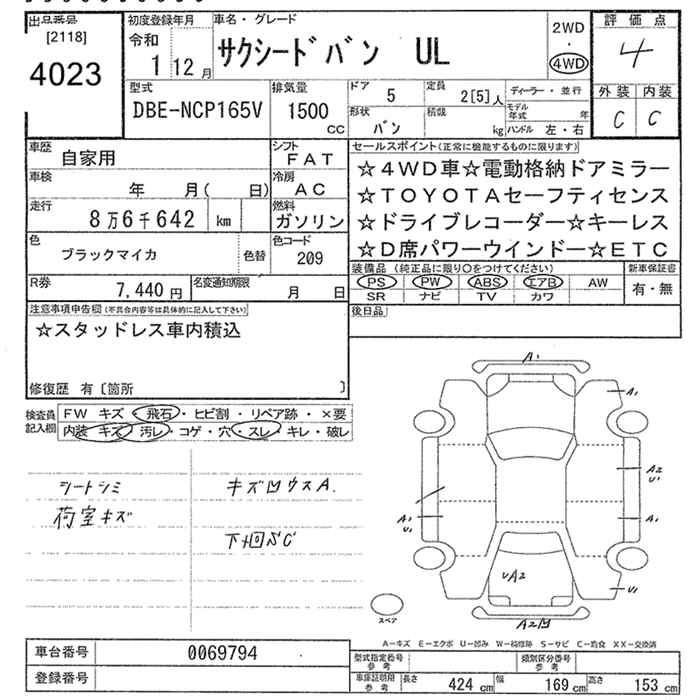 出品番号
[2118]
4023
初度登録年月
令和
1 12月
車名・グレード
サクシードバン UL
2WD
・
4WD
評価点
4
型式
DBE-NCP165V
排気量
1500
cc
ドア 5
定員 2[5]人
ディーラー・並行
形状
バン
積載
kg
モデル年式 年
ハンドル 左・右
外装 内装
C C
車歴 自家用
シフト FAT
車検 年 月( 日)
冷房 AC
走行 8万6千642 km
燃料 ガソリン
色 ブラックマイカ
色替
色コード 209
R券 7,440円
名変通知期限 月 日
セールスポイント(正常に機能するものに限ります)
☆4WD車☆電動格納ドアミラー
☆TOYOTAセーフティセンス
☆ドライブレコーダー☆キーレス
☆D席パワーウインドー☆ETC
装備品 (純正品に限り○をつけてください)
新車保証書
PS PW ABS エアB AW
SR ナビ TV カワ
有・無
後日品
注意事項申告欄(不具合内容等は具体的に記入して下さい)
☆スタッドレス車内積込
修復歴 有〔箇所 〕
検査員記入欄
FW キズ・飛石・ヒビ割・リペア跡・×要
内装 キズ・汚レ・コゲ・穴・スレ・キレ・破レ
シートシミ
荷室キズ
キズ凹ウスA.
下回SC
A1
A1
A2
U1
A1
U1
A1
UA2
U1
スペア
A2凹
A-キズ E-エクボ U-凹み W-補修跡 S-サビ C-腐食 XX-交換済
車台番号 0069794
登録番号
型式指定番号 参考
類別区分番号 参考
車庫証明用 参考
長さ 424cm 幅 169cm 高さ 153cm